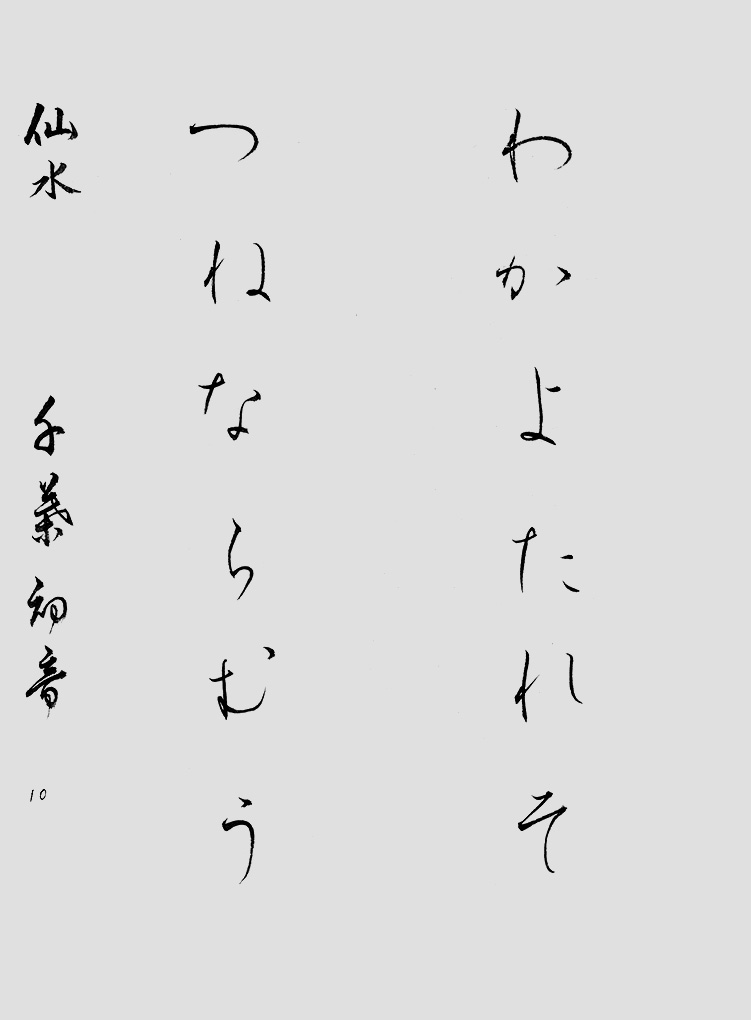 わかよたれそ
つねならむう
仙水 千葉初音 10